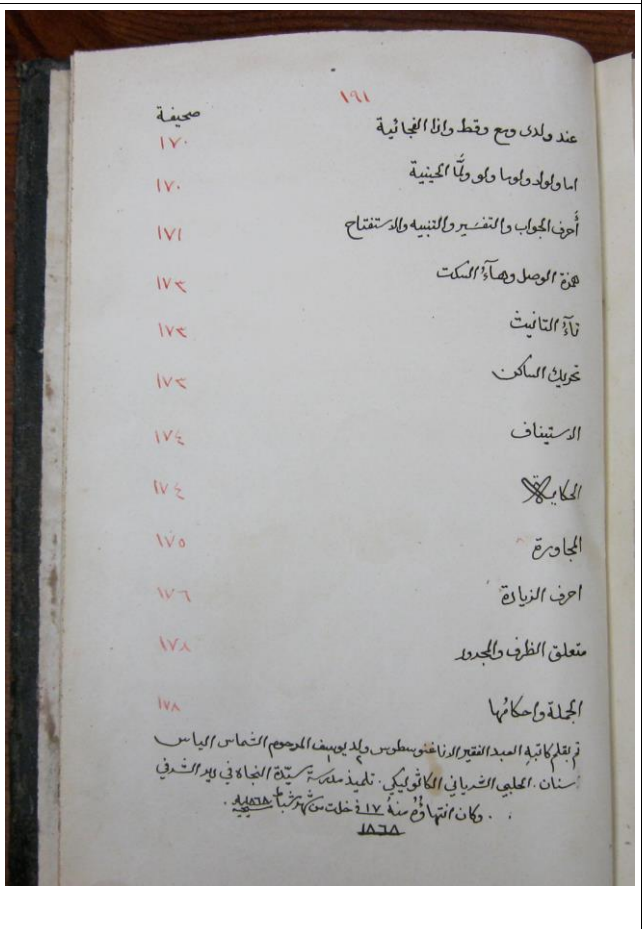 ١٩١
صحيفة
عند ولدى ومع وقط واذا الفجائية ١٧٠
اما ولولا ولوما ولو ولمَّا الحينية ١٧٠
أَحرف الجواب والتفسير والتنبيه والاستفتاح ١٧١
همزة الوصل وهآءُ السكت ١٧٢
تآءُ التانيث ١٧٣
تحريك الساكن ١٧٣
الاستيناف ١٧٤
الحكاية ١٧٤
المجاورة ١٧٥
احرف الزيادة ١٧٦
متعلق الظرف والمجرور ١٧٨
الجملة واحكامُها ١٧٨
تم بقلم كاتبهِ العبد الفقير ولد يوسف المرحوم الشماس الياس
سنان. الحلبي السرياني الكاثوليكي. تلميذ مدرسة سيّدة النجاة في دير الشرفي
. وكان انتهاؤُهُ منهُ في ١٧ خلت من شهر شباط ١٨٦٨ مسيحية.
١٨٦٨